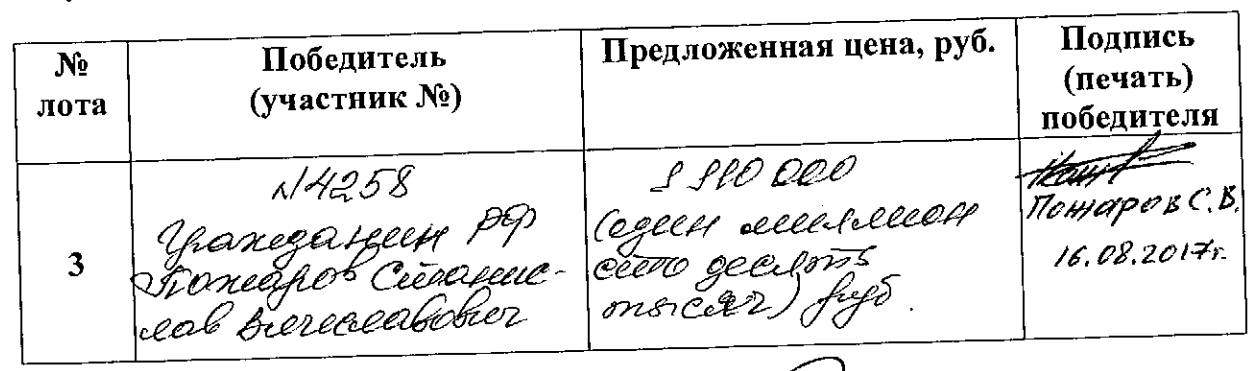 № лота
Победитель (участник №)
Предложенная цена, руб.
Подпись (печать) победителя
3
№4258
Гражданин РФ
Пожаров Станис-
лав Вячеславович
1 110 000
(один миллион
сто десять
тысяч) руб.
Пожаров С.В.
16.08.2017г.